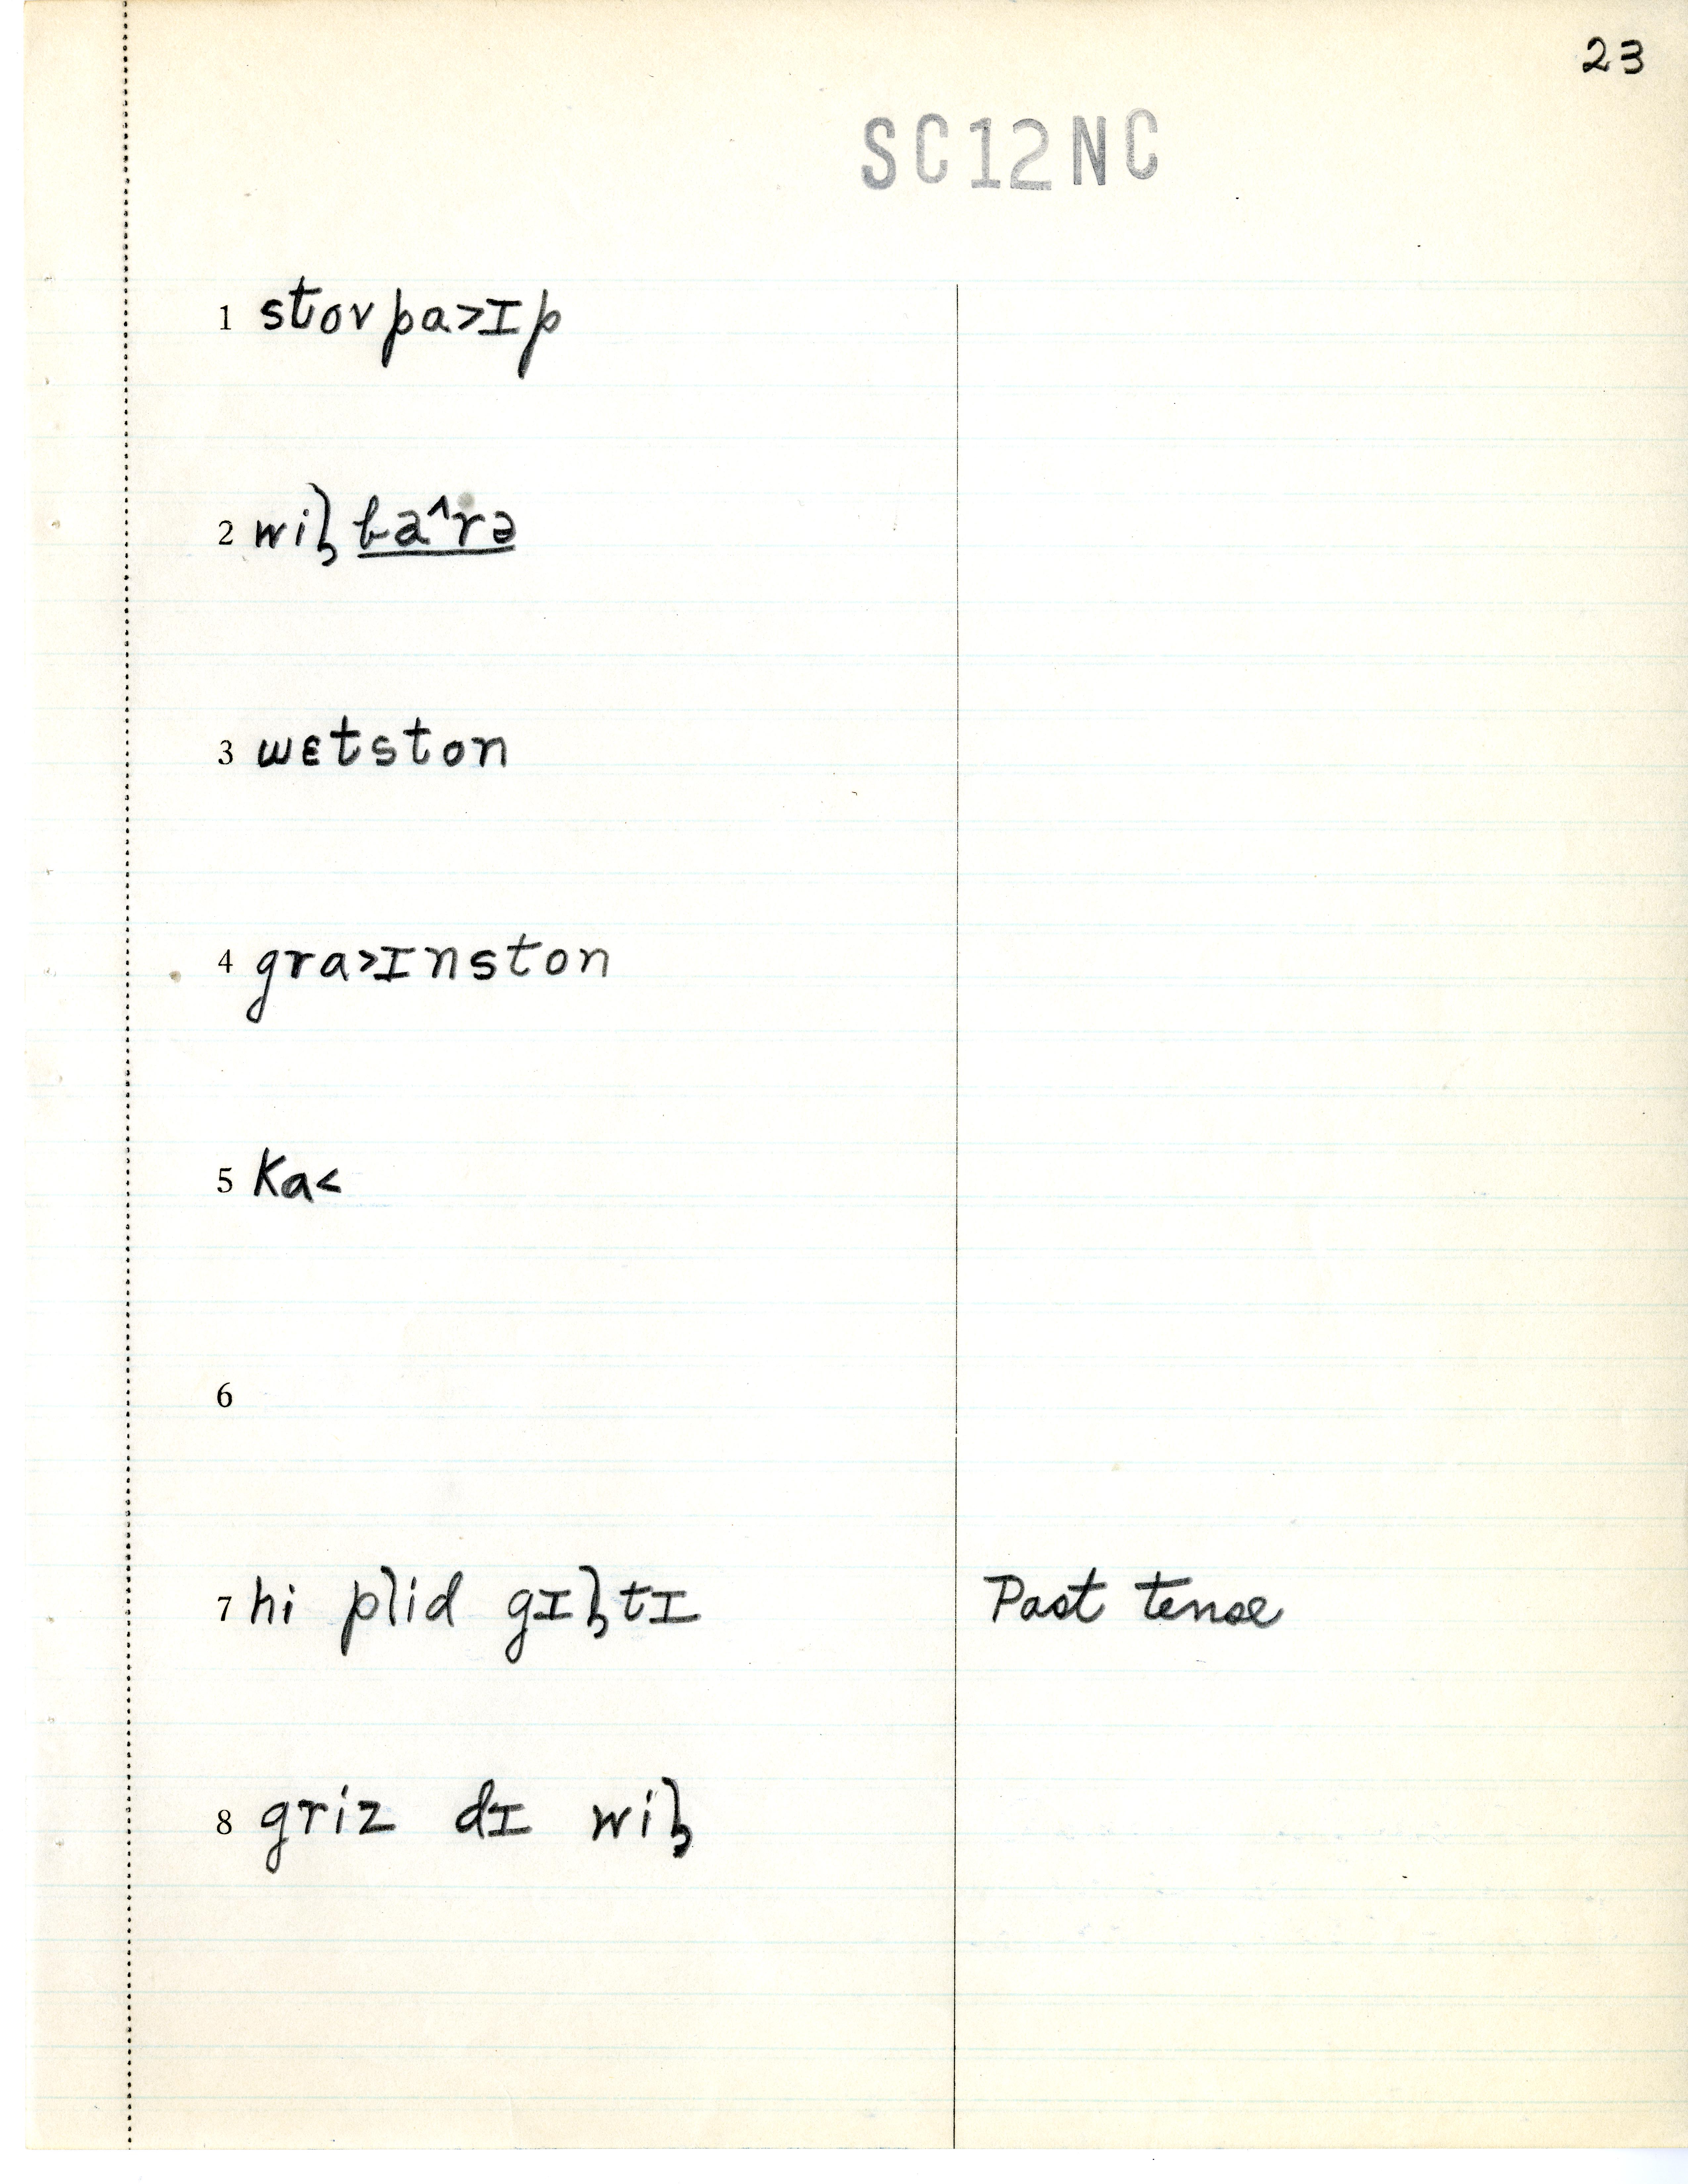 23
SC12NC
1 stov pa>ɪp
2 wiɫ ba^rə
3 wɛtston
4 gra>ɪnston
5 ka<
6
7 hi plid gɪɫtɪ Past tense
8 griz dɪ wiɫ